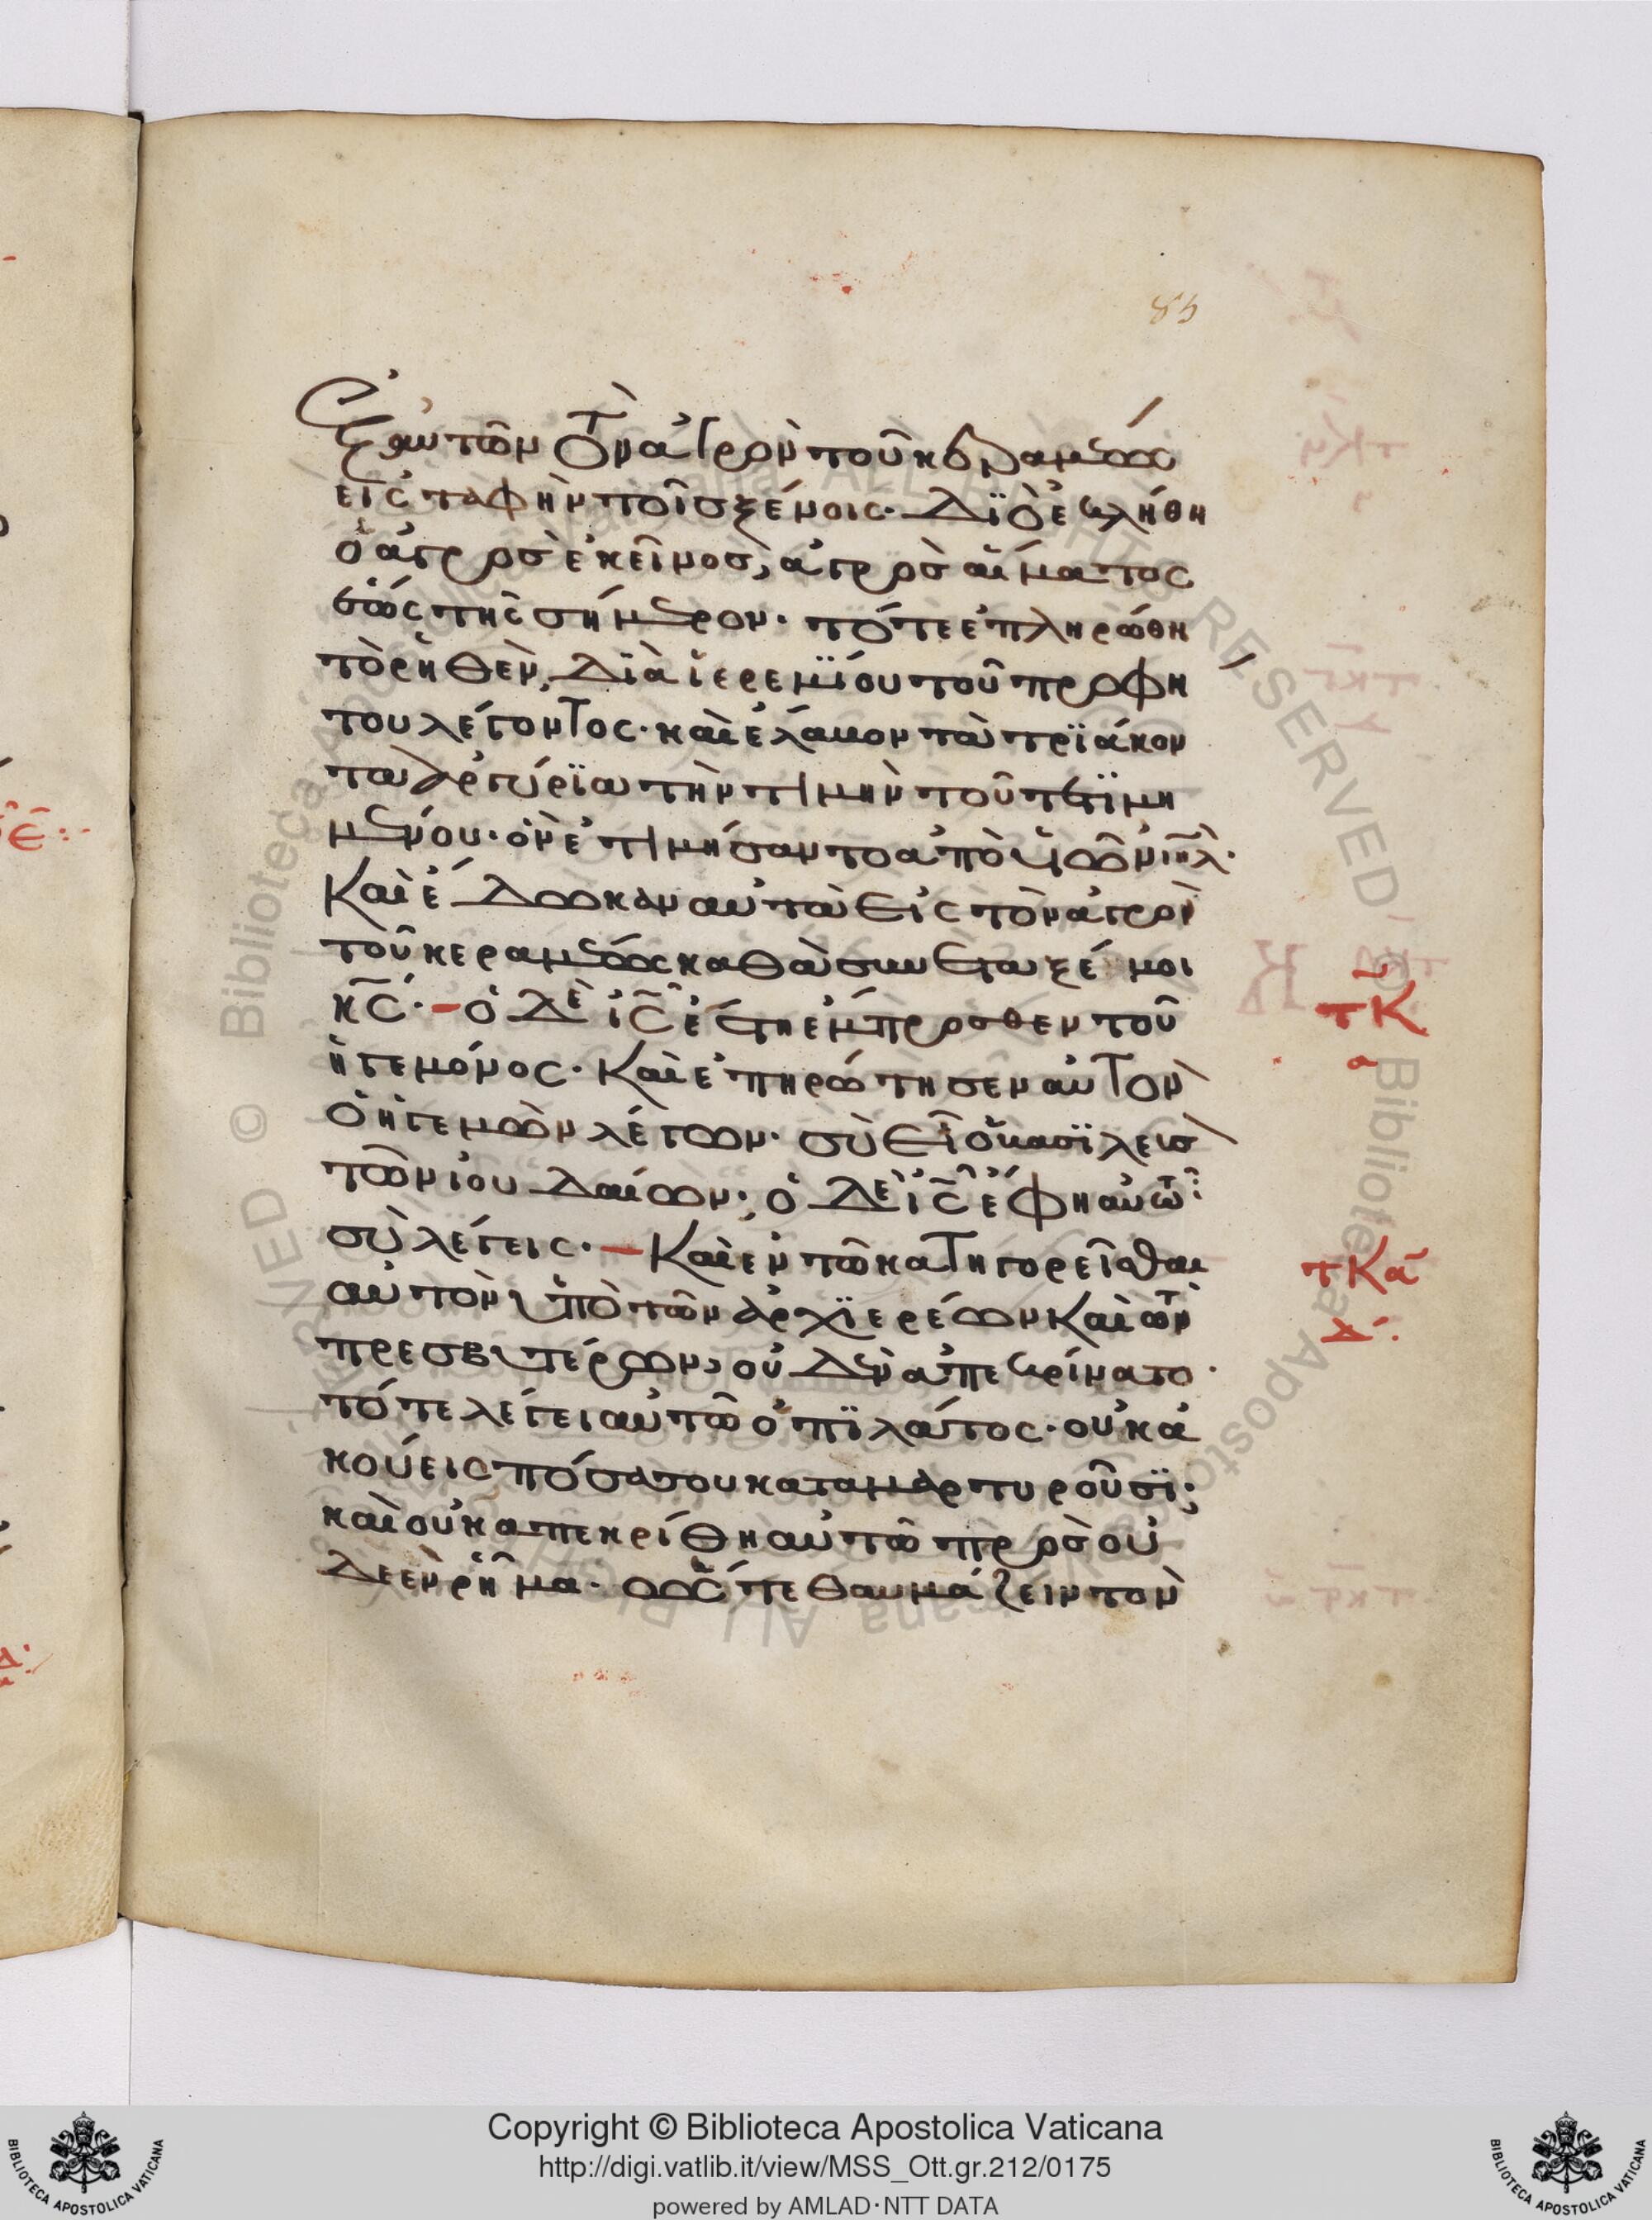 85
ἐξ αὐτῶν τὸν ἀγρὸν τοῦ κεραμέως
εἰς ταφὴν τοῖς ξένοις· διὸ ἐκλήθη
ὁ ἀγρὸς ἐκεῖνος, ἀγρὸς αἵματος
ἕως τῆς σήμερον· τότε ἐπληρώθη
τὸ ρηθὲν, διὰ ἱερεμΐου τοῦ προφή
του λέγοντος· καὶ ἔλαβον τὰ τρϊάκον
τα ἀργύρϊα τὴν τιμὴν τοῦ τετϊμη
μένου· ὃν ἐτιμήσαντο ἀπὸ υἱῶν ιηλ·
Καὶ ἔδωκαν αὐτὰ εἰς τὸν ἀγρὸν
τοῦ κεραμέως καθὰ συνέταξέ μοι
κς· – ὁ δὲ ις ἔστη ἔμπροσθεν τοῦ
ἡγεμόνος· Καὶ ἐπηρώτησεν αὐτὸν
ὁ ἡγεμὼν λέγων· σὺ εἶ ὁ βασϊλεὺς
τῶν ἰουδαίων; ὁ δὲ ις ἔφη αὐτῶ·
σὺ λέγεις· – Καὶ ἐν τῶ κατηγορεῖσθαι
αὐτὸν ὑπὸ τῶν ἀρχϊερέων Καὶ τῶν
πρεσβυτέρων, οὐδὲν ἀπεκρίνατο·
τότε λέγει αὐτῶ ὁ πϊλάτος· οὐκ ἀ
κούεις πόσα σου καταμαρτυροῦσϊ;
καὶ οὐκ ἀπεκρίθη αὐτῶ πρὸς οὐ
δὲ ἓν ρῆμα· ὥστε θαυμάζειν τὸν
τκ
τκα
δ·
© Biblioteca Apostolica Vaticana ALL RIGHTS RESERVED
Copyright © Biblioteca Apostolica Vaticana
http://digi.vatlib.it/view/MSS_Ott.gr.212/0175
powered by AMLAD·NTT DATA
BIBLIOTECA APOSTOLICA VATICANA
BIBLIOTECA APOSTOLICA VATICANA